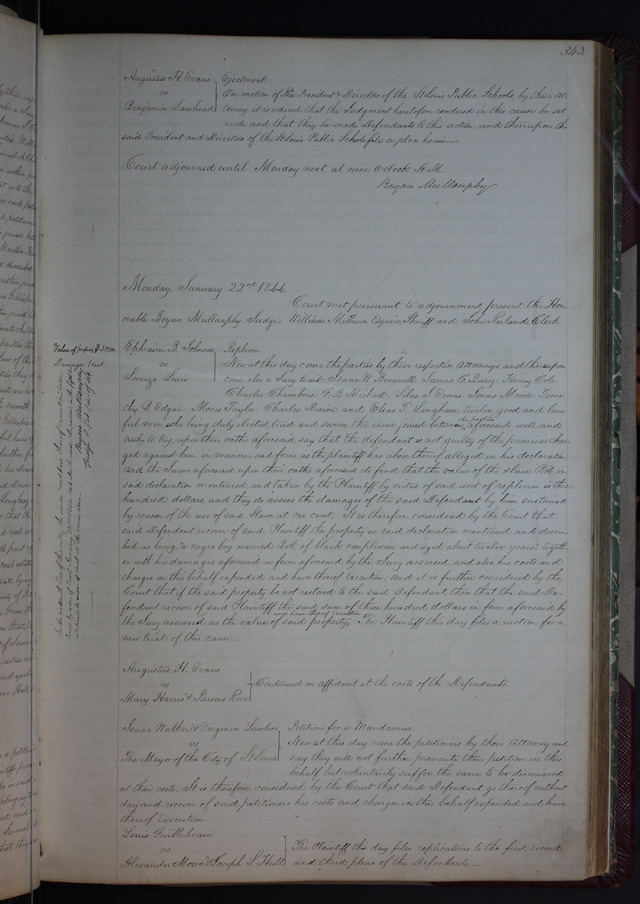 343
Augustus H. Evans } Ejectment
vs On motion of The President & Directors of the St Louis Public Schools, by their At
Benjamin Lawhead torney, it is ordered that the Judgment heretofore rendered in this cause be set
aside and that they be made Defendants to this action and thereupon the
said President and Directors of the St Louis Public Schools file a plea herein
Court adjourned until Monday next, at nine O'clock A.M.
Bryan Mullanphy
Monday, January 22nd 1844.
Court met pursuant to adjournment, present the Hon
orable Bryan Mullanphy, Judge; William Milburn Esquire, Sheriff and John Ruland, Clerk.
Value of property $300.00
Damages 1 cent
Ephraim B. Johnson } Replevin
vs Now at this day come the parties by their respective Attorneys and thereupon
Lorenzo Lewis come also a Jury to wit; Isaac W. Bonnell James C. Bury Henry Cole
Charles Chambers Silas S. Evans Jonas Moore Timo
thy D. Edgar, Moses Taylor, Charles Dunn and Elias T. Langham, twelve good and law
ful men, who being duly elected tried and sworn the issue joined between the parties aforesaid well and
truly to try, upon their oaths aforesaid say that the defendant is not guilty of the premises char
ged against him in manner and form as the plaintiff has above thereof alleged in his declaration
and the Jurors aforesaid upon their oaths aforesaid do find that the value of the Slave Bob in
said declaration mentioned and taken by the Plaintiff by virtue of said writ of replevin is three
hundred dollars, and they do assess the damages of the said Defendant by him sustained
by reason of the use of said Slave at one cent; It is therefore considered by the Court that
said Defendant recover of said Plaintiff the property in said declaration mentioned and descri
bed as being "a negro boy named Bob of black complexion and aged about twelve years" togeth
er with his damages aforesaid in form aforesaid by the Jury assessed, and also his costs and
charges in this behalf expended and have thereof Execution. And it is further considered by the
Court that if the said property be not restored to the said Defendant, then that the said De
fendant recover of said Plaintiff the said sum of three hundred dollars in form aforesaid by
the Jury assessed as the value of said property and have thereof Execution. The Plaintiff this day files a motion for a
new trial of this cause.
Augustus H. Evans
vs } Continued on affidavit at the costs of the Defendants.
Mary Harris & Parsons Rose
Isaac Walker & Virginia Lawless } Petition for a Mandamus.
vs Now at this day come the petitioners by their Attorney and
The Mayor of the City of St Louis say they will not further prosecute their petition in this
behalf but voluntarily suffer the same to be dismissed
at their costs. It is therefore considered by the Court that said Defendant go thereof without
day and recover of said petitioners his costs and charges in this behalf expended and have
thereof Execution.
Louis Guillebeau
vs } The Plaintiff this day files replications to the first, second
Alexander Moore & Joseph S. Hull and third pleas of the Defendants.